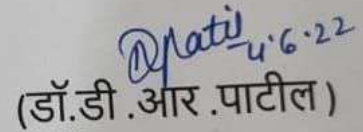 DRPatil
4.6.22
(डॉ.डी.आर.पाटील)